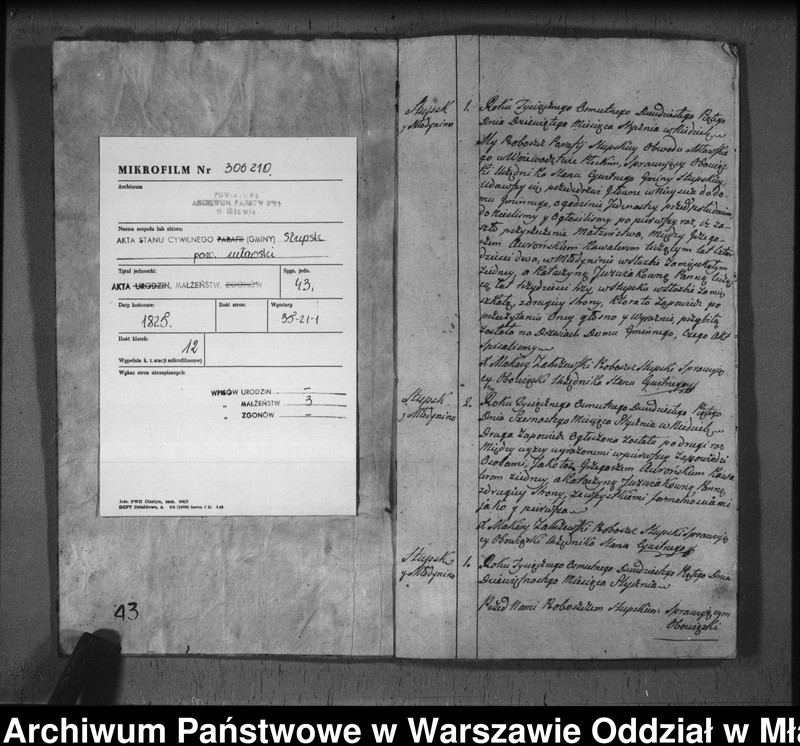 MIKROFILM Nr 306210.
Archiwum
ARCHIWUM PAŃSTWOWE
Nazwa zespołu lub zbioru:
AKTA STANU CYWILNEGO PARAFII (GMINY) Słupsk
pow. mławski
Tytuł jednostki:
AKTA URODZIN, MAŁŻEŃSTW, ZGONÓW
Sygn. jedn.
43.
Daty końcowe:
1825.
Ilość stron:
Wymiary
35-21-1
Ilość klatek:
12
Wypełnia k. t. stacji mikrofilmowej
Wykaz stron niezapisanych:
WPISÓW URODZIN –
„ MAŁŻEŃSTW 3
„ ZGONÓW –
43
Słupsk
y Młodynino
1. Roku Tysiącznego Osmsetnego Dwudziestego Piątego
Dnia Dziewiątego Miesiąca Stycznia w Niedzielę
My Proboszcz Parafii Słupskiey Obwodu Mławskie
go w Województwie Płockim, Sprawujący Obowiąz
ki Urzędnika Stanu Cywilnego Gminy Słupskiey
udawszy się przede drzwi główne do do
mu Gminnego, o godzinie Jedenastej przed południem,
po pierwszy raz, iż za
szło przyrzeczenie Małżeństwa, Między Grzego
rzem Kawalerem liczącym lat
dzieści dwa, w Młodyninie w służbie zamieszkałym
z iedney, a Katarzyną Panną
lat trzydzieści trzy, w Słupsku w służbie zamie
szkałą, z drugiey strony, Która to zapowiedź po
przeczytaniu Oney głośno y wyraźnie, przybitą
została na Drzwiach Domu Gminnego, czego Akt
spisaliśmy
X Makary Zakrzewski Proboszcz Słupski Sprawują
cy Obowiązki Urzędnika Stanu Cywilnego
Słupsk
y Młodynino
2. Roku Tysiącznego Osmsetnego Dwudziestego Piątego
Dnia Szesnastego Miesiąca Stycznia w Niedzielę
Druga zapowiedź Ogłoszona została po drugi raz
Między wyżej wyrażonemi w pierwszey zapowiedzi
Osobami, Jako to Grzegorzem Kawa
lerem z iedney, a Katarzyną Panną
z drugiey Strony, ze wszystkiemi formalnościami
jako y pierwsza
X Makary Zakrzewski Proboszcz Słupski Sprawują
cy Obowiązki Urzędnika Stanu Cywilnego
Słupsk
y Młodynino
1. Roku Tysiącznego Osmsetnego Dwudziestego Piątego Dnia
Dziewiętnastego Miesiąca Stycznia
Przed Nami Proboszczem Słupskim Sprawującym
Obowiązki
Archiwum Państwowe w Warszawie Oddział w Mła